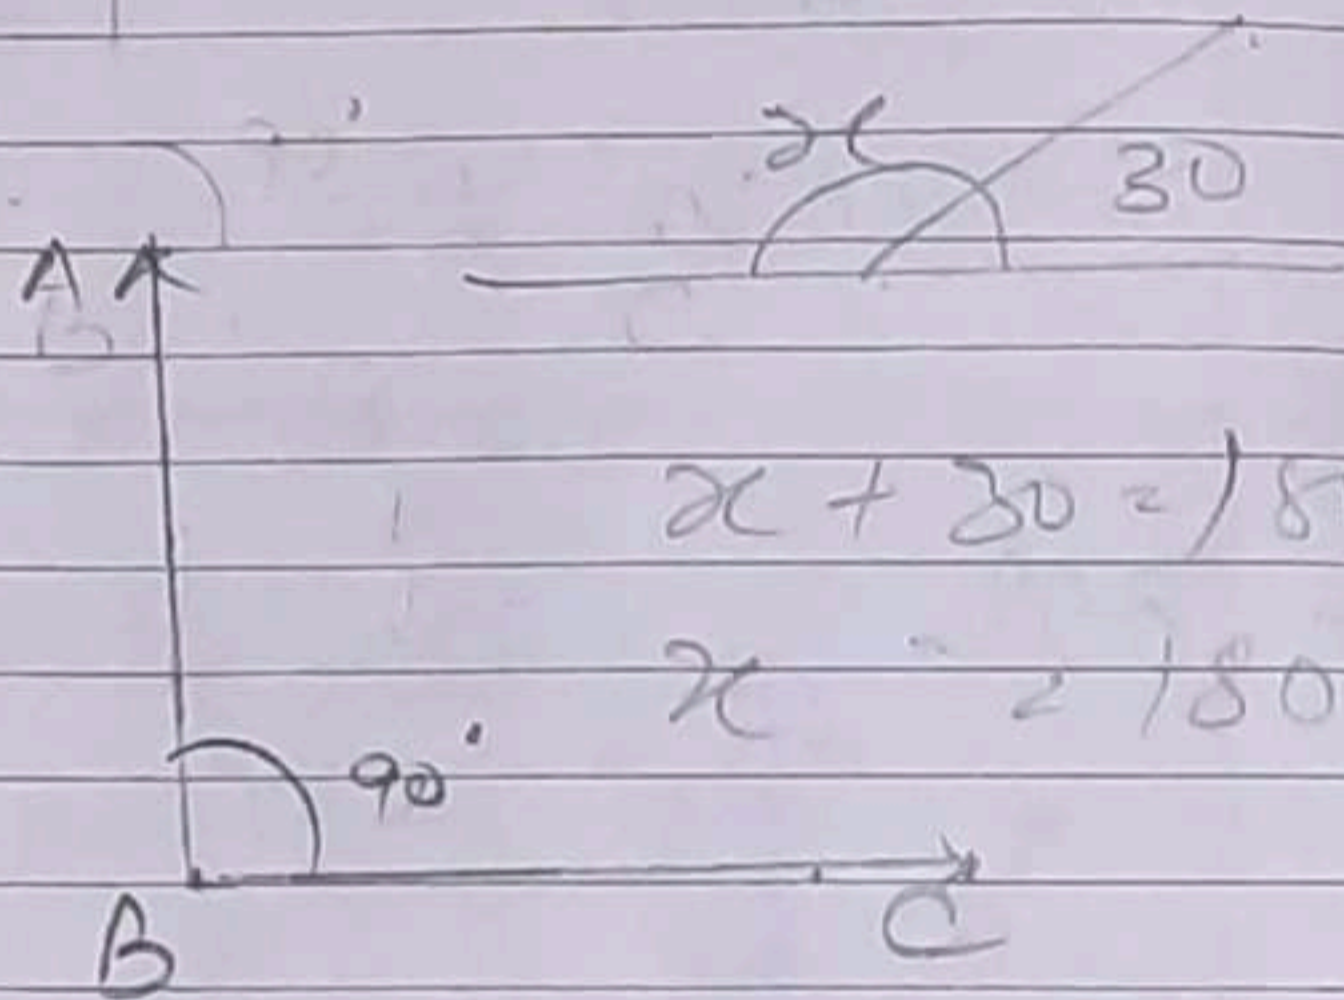 x
30
A
x + 30 = 18
x = 180
90°
B
C